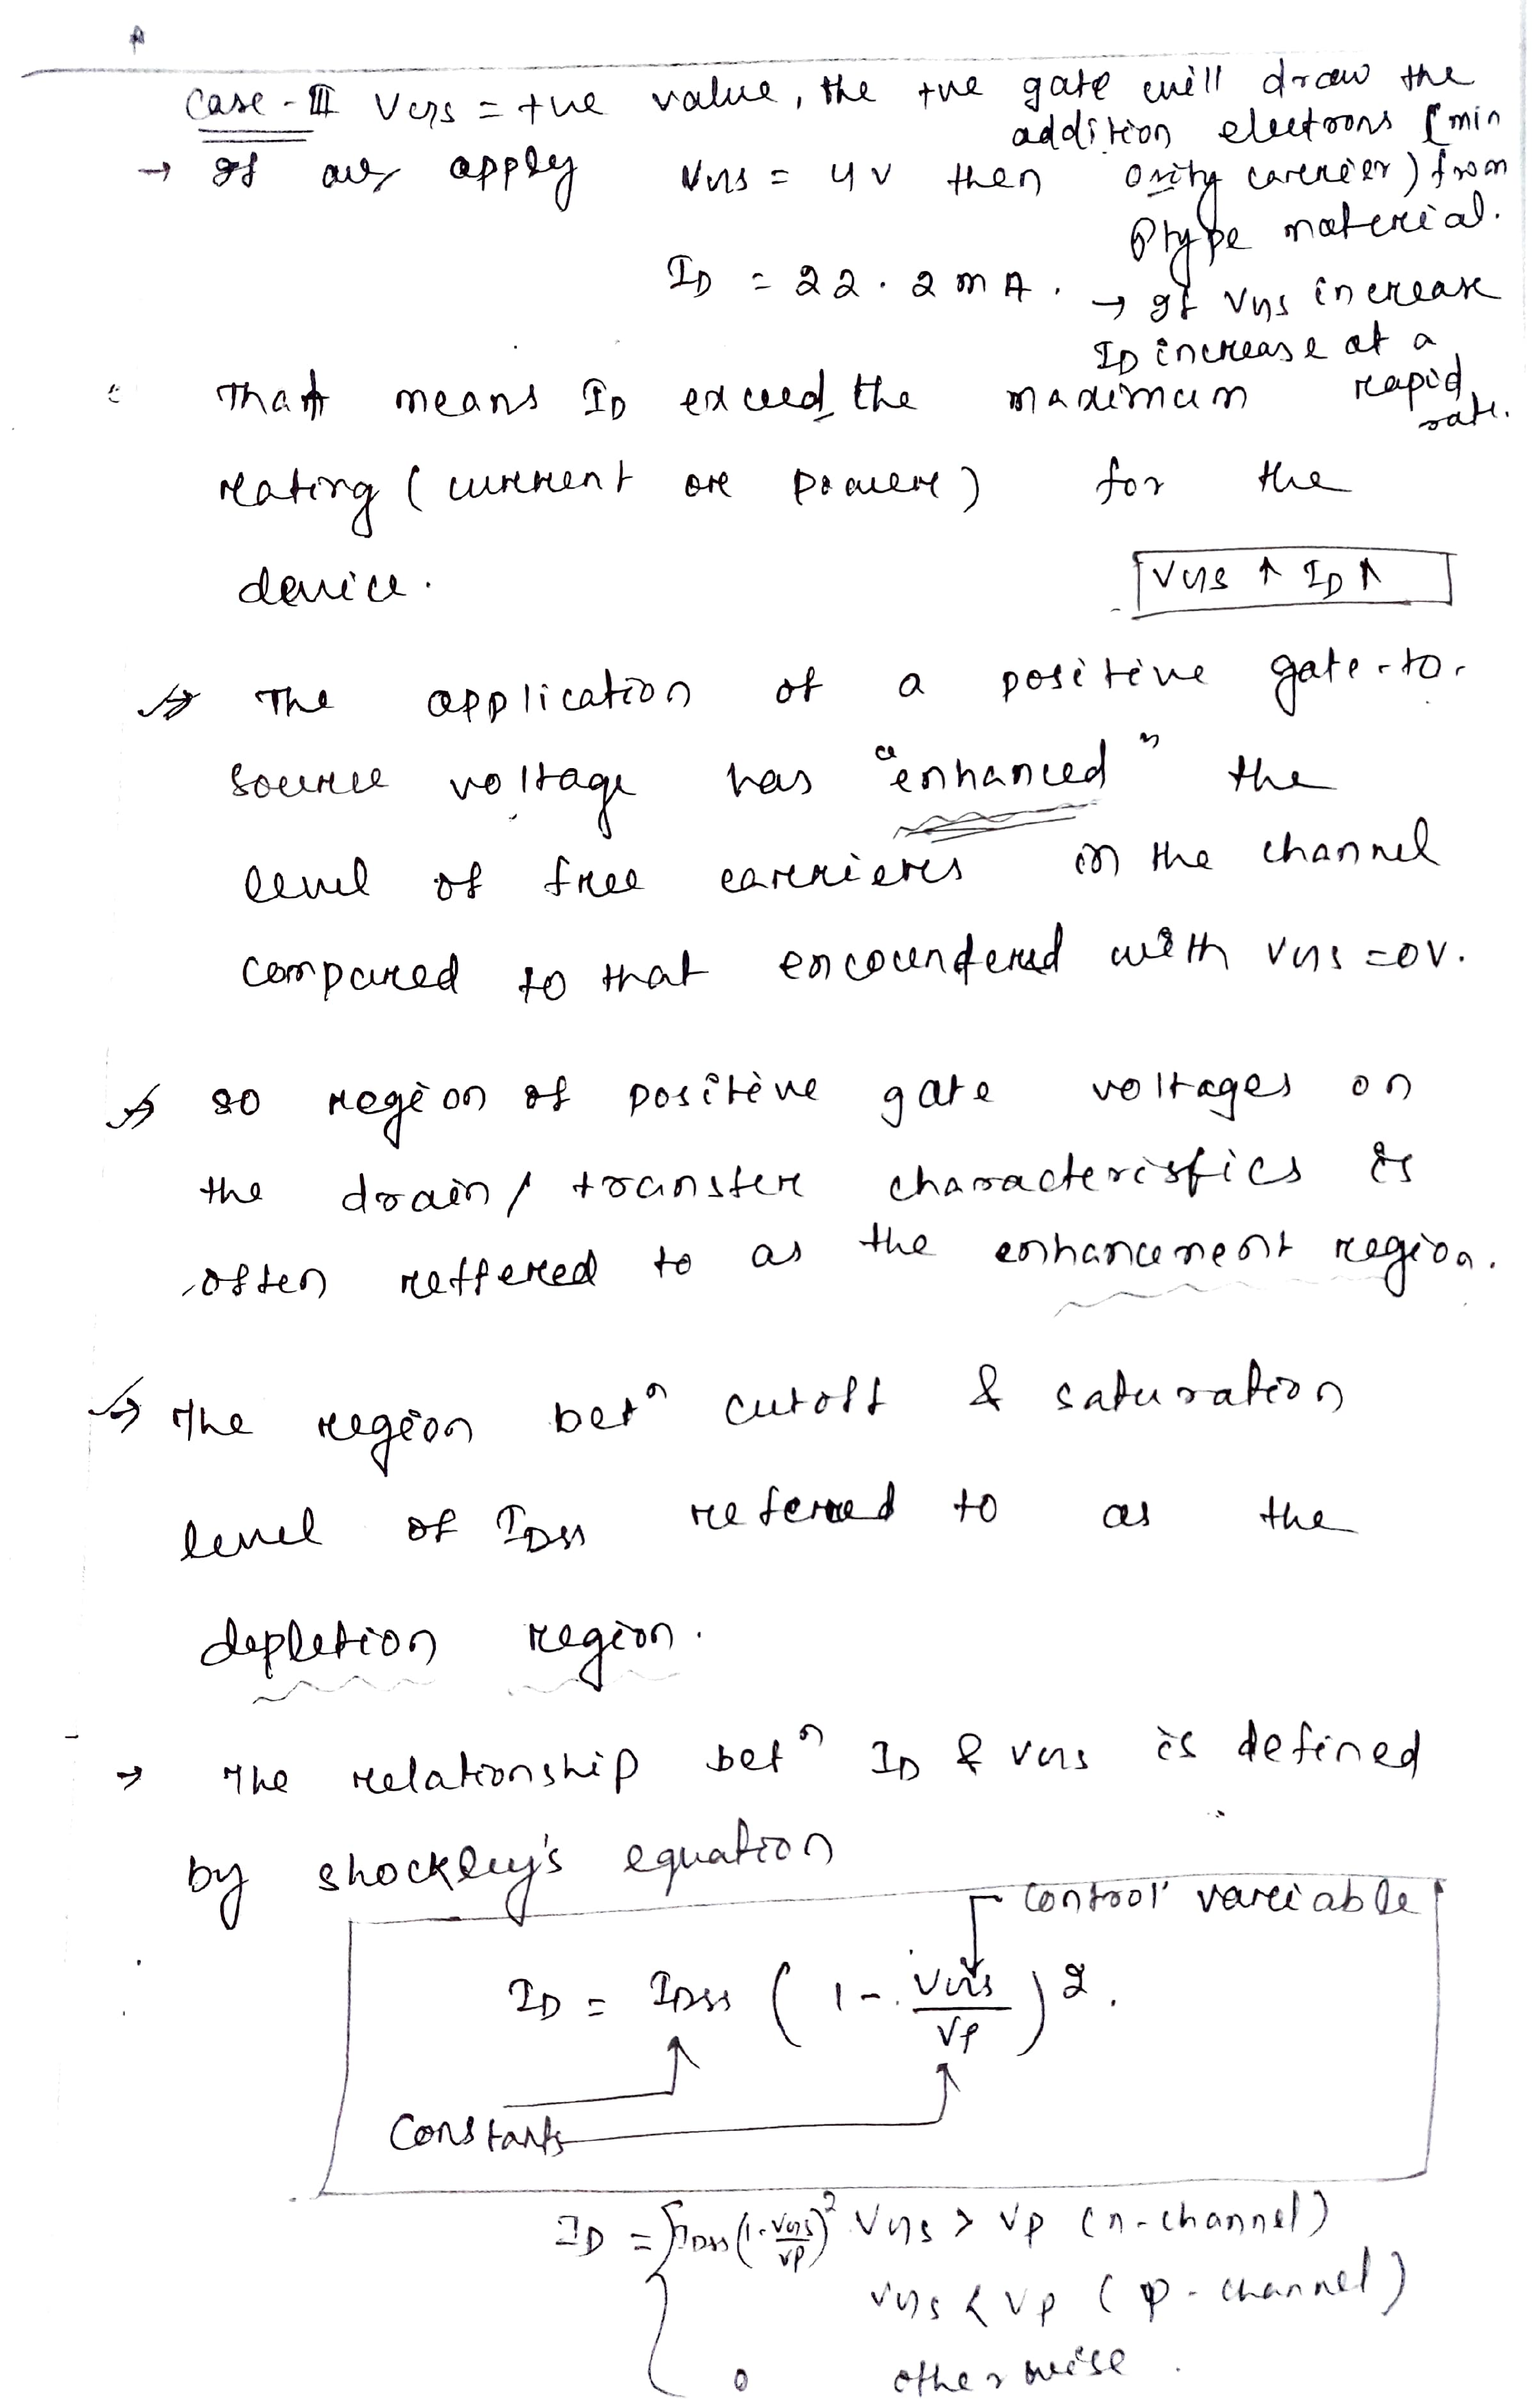 Case-III VGS = +ve value, the +ve gate will draw the
addition electrons (min
ority carrier) from
Ptype material.
→ If we apply VGS = 4V then
ID = 22.2 mA.
→ If VGS increase
ID increase at a
rapid
rate.
That means ID exceed the maximum
rating (current or power) for the
device.
VGS ↑ ID ↑
→ The application of a positive gate-to-
source voltage has "enhanced" the
level of free carriers in the channel
compared to that encoundered with VGS = 0V.
→ so region of positive gate voltages on
the drain/ transfer characteristics is
often reffered to as the enhancement region.
→ The region betn cutoff & saturation
level of IDSS referred to as the
depletion region.
→ The relationship betn ID & VGS is defined
by shockley's equation
control variable
ID = IDSS (1 - VGS/VP)2.
Constants
ID = { IDSS (1 - VGS/VP)2 VGS > VP (n-channel)
VGS < VP (p-channel)
0 otherwise.